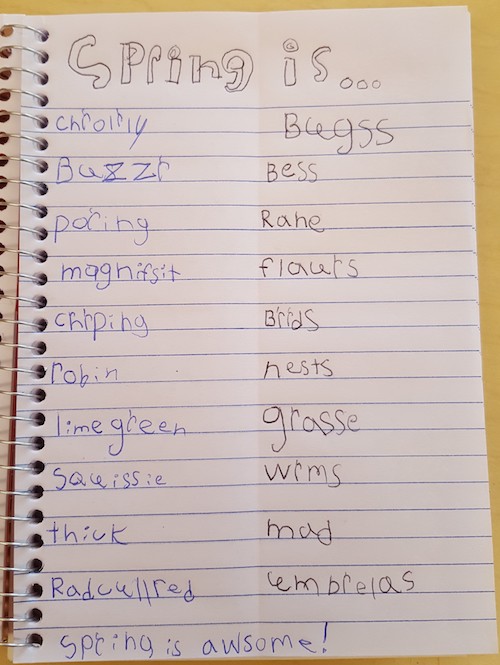 Spring is...
chrolrly Bugss
Buzzr Bess
poring Rane
magnifsit flaurs
chrping Brrds
robin nests
lime green grasse
squissie wrms
thick mad
Radcullred umbrelas
Spring is awsome!